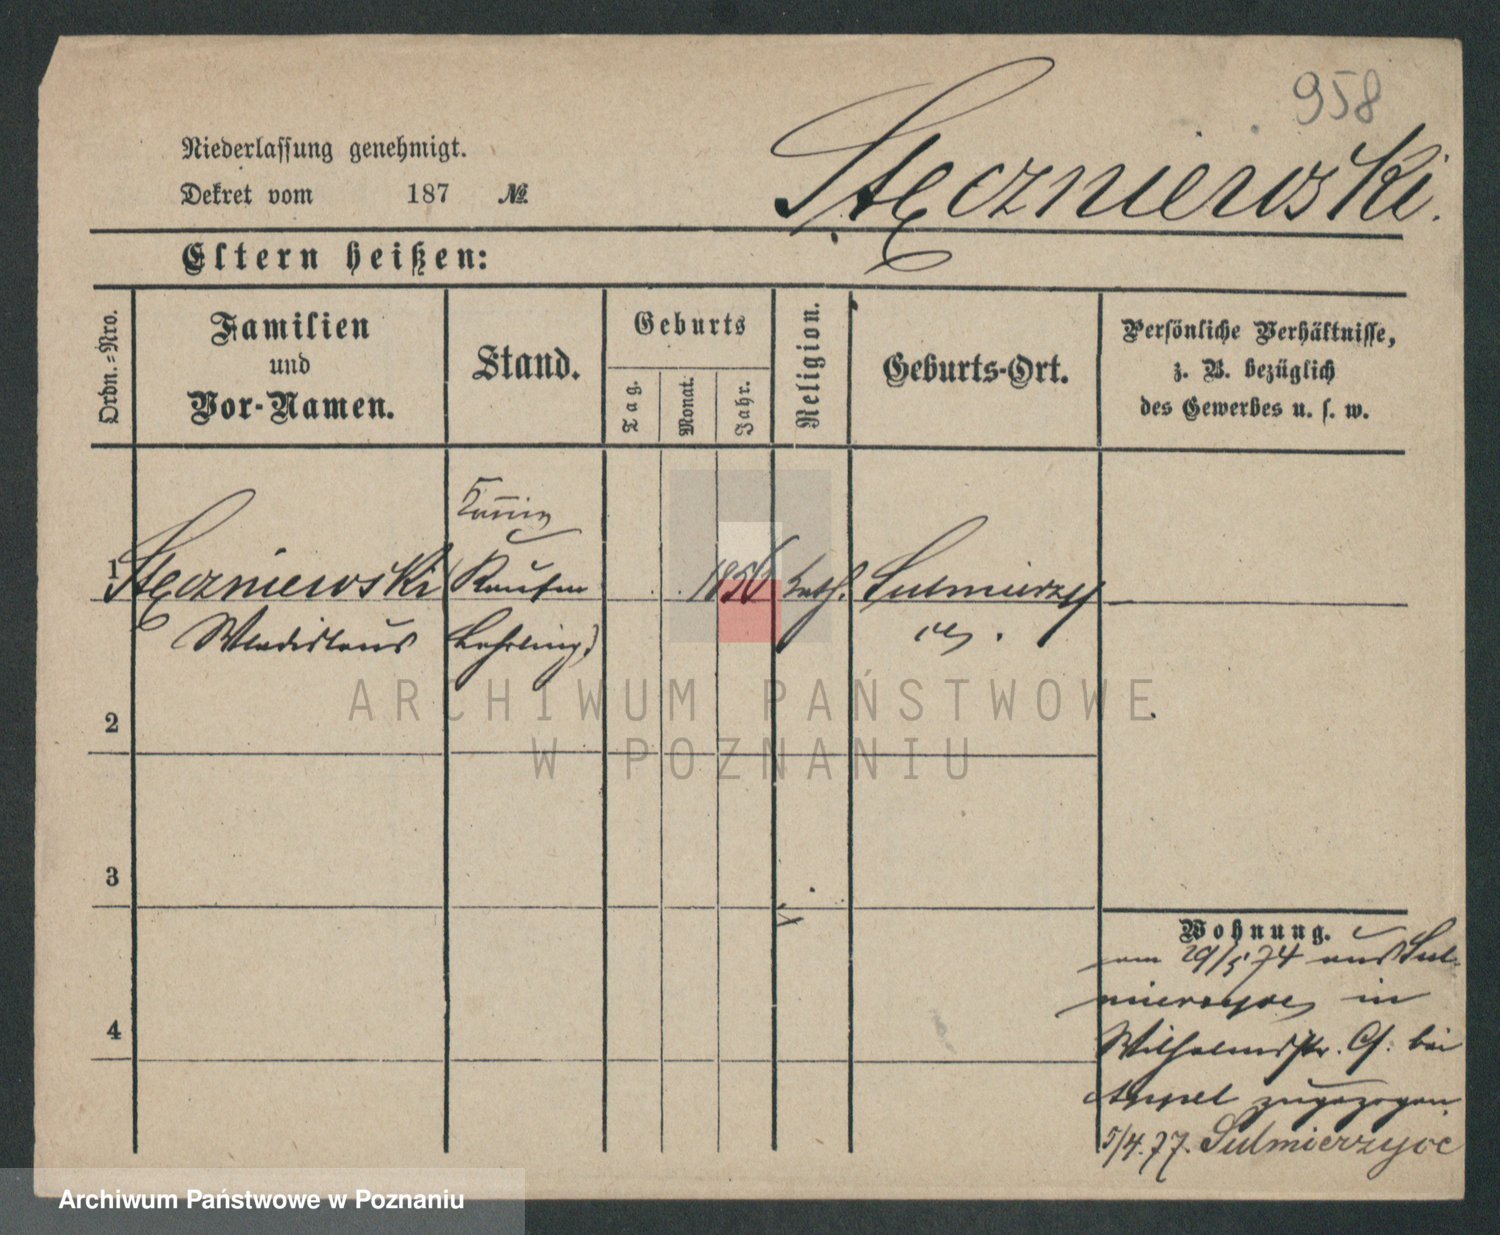 958
Stęczniewski.
Niederlassung genehmigt.
Dekret vom 187 №
Eltern heißen:
Ordn.=Nro.
Familien
und
Vor-Namen.
Stand.
Geburts
Tag.
Monat.
Jahr.
Religion.
Geburts-Ort.
Persönliche Verhältnisse,
z. B. bezüglich
des Gewerbes u. s. w.
1 Stęczniewski
Wladislaus
Kaufm
Lehrling)
1856
kath.
Sulmierzy
ce.
2
3
4
Wohnung.
am 29/5 74 aus Sul-
mierzyce in
Wilhelmstr. 9. bei
Appel zugezogen
5/4.77. Sulmierzyce
ARCHIWUM PAŃSTWOWE
W POZNANIU
Archiwum Państwowe w Poznaniu